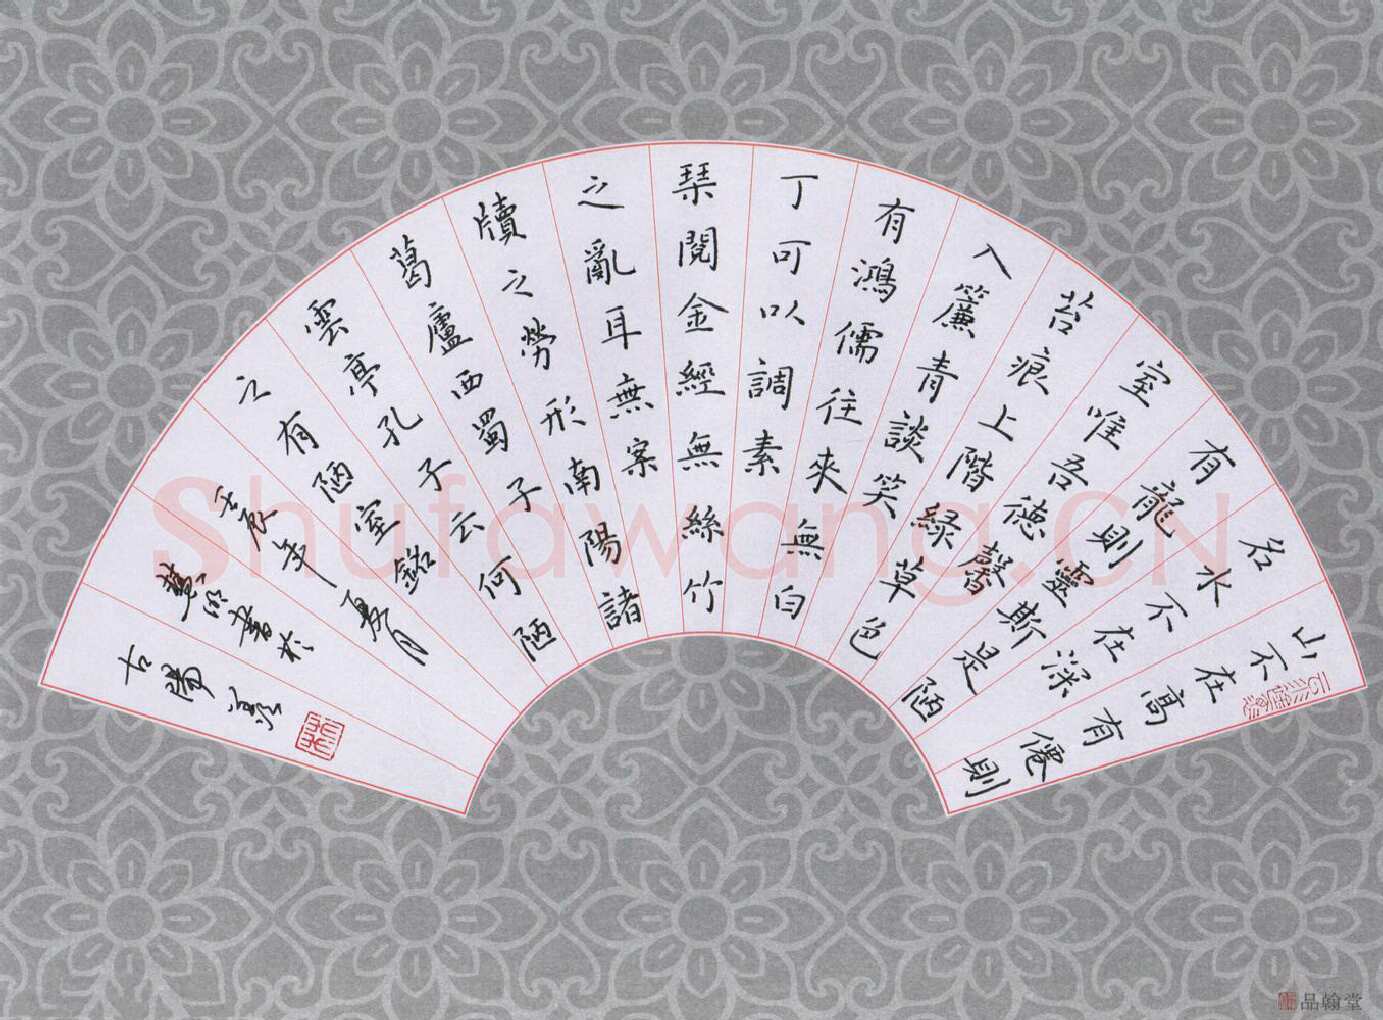 山不在高有僊則
名水不在深
有龍則靈斯是陋
室唯吾德馨
苔痕上階緑草色
入簾青談笑
有鴻儒往來無白
丁可以調素
琹閱金經無絲竹
之亂耳無案
牘之勞形南陽諸
葛廬西蜀子
雲亭孔子云何陋
之有陋室銘
壬辰年夏月
書於
古陽
Shufawang.CN
品翰堂